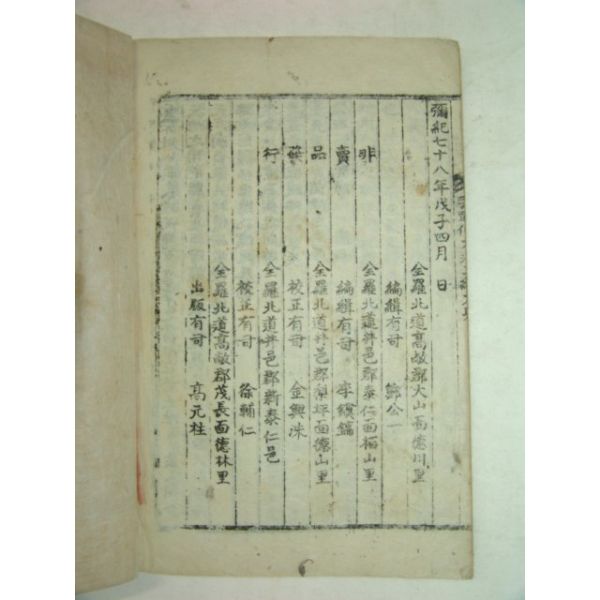 彌紀七十八年戊子四月 日
全羅北道高敞郡大山面德川里
編緝有司 鄭公一
非 全羅北道井邑郡泰仁面栢山里
賣 編緝有司 李
品 全羅北道井邑郡梨坪面德山里
校正有司 金興洙
行 全羅北道井邑郡新泰仁邑
校正有司 徐輔仁
全羅北道高敞郡茂長面德林里
出版有司 高元柱